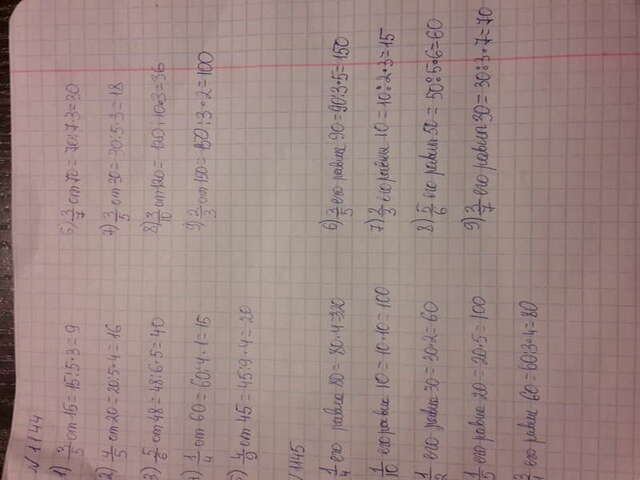 №1144
1) 3/5 от 15 = 15:5·3 = 9
2) 4/5 от 20 = 20:5·4 = 16
3) 5/6 от 48 = 48:6·5 = 40
4) 1/4 от 60 = 60:4·1 = 15
5) 4/9 от 45 = 45:9·4 = 20
6) 3/7 от 70 = 70:7·3 = 30
7) 3/5 от 30 = 30:5·3 = 18
8) 3/10 от 120 = 120:10·3 = 36
9) 2/3 от 150 = 150:3·2 = 100
№1145
1/4 его равна 80 = 80·4 = 320
1/10 его равна 10 = 10·10 = 100
1/2 его равна 30 = 30·2 = 60
1/5 его равна 20 = 20·5 = 100
3/4 его равна 60 = 60:3·4 = 80
6) 3/5 его равна 90 = 90:3·5 = 150
7) 2/3 его равна 10 = 10:2·3 = 15
8) 5/6 его равна 50 = 50:5·6 = 60
9) 3/7 его равна 30 = 30:3·7 = 70